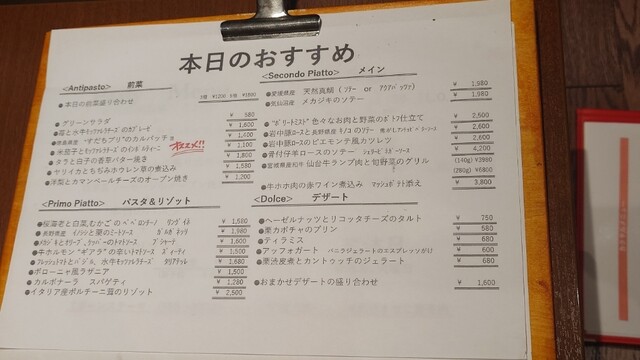 本日のおすすめ
<Antipasto> 前菜
●本日の前菜盛り合わせ 2種 ¥1200 4種 ¥1800
●グリーンサラダ ¥ 580
●苺と水牛モッツァレラチーズのカプレーゼ ¥ 1,600
●徳島県産 "すだちブリ"のカルパッチョ オススメ!! ¥ 1,400
¥ 1,100
¥ 1,800
●タラと白子の香草バター焼き ¥ 1,580
●ヤリイカとちぢみホウレン草の煮込み ¥ 1,200
●洋梨とカマンベールチーズのオーブン焼き
<Primo Piatto> パスタ&リゾット
●桜海老と白菜,むかごのペペロンチーノ リングイネ ¥ 1,580
●長野県産 イノシシと栗のミートソース ¥ 1,980
¥ 1,600
●牛ホルモン"ギアラ"の辛いトマトソース ズィーティ ¥ 1,500
●フレッシュトマトとバジル、水牛モッツァレラチーズ タリアテッレ ¥ 1,680
●ボローニャ風ラザニア ¥ 1,500
●カルボナーラ スパゲティ ¥ 1,280
●イタリア産ポルチーニ茸のリゾット ¥ 2,500
<Secondo Piatto> メイン
●愛媛県産 天然真鯛 (ソテー or アクアパッツァ) ¥ 1,980
●気仙沼産 メカジキのソテー ¥ 1,980
●"ボリートミスト" 色々なお肉と野菜のポトフ仕立て ¥ 2,500
●岩中豚ロースと長野県産キノコのソテー ¥ 2,600
●岩中豚ロースのピエモンテ風カツレツ ¥ 2,600
●骨付仔羊ロースのソテー ¥ 4,200
●宮城県産和牛 仙台牛ランプ肉と旬野菜のグリル (140g) ¥3980
(280g) ¥6800
●牛ホホ肉の赤ワイン煮込み マッシュポテト添え ¥ 3,800
<Dolce> デザート
●ヘーゼルナッツとリコッタチーズのタルト ¥ 750
●栗カボチャのプリン ¥ 580
●ティラミス ¥ 680
●アッフォガート バニラジェラートのエスプレッソがけ ¥ 600
●栗渋皮煮とカントゥッチのジェラート ¥ 680
●おまかせデザートの盛り合わせ ¥ 1,600